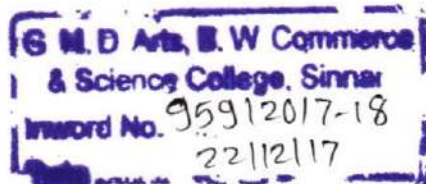 G M. D Arts, B. W Commerce
& Science College, Sinnar
Inword No. 959/2017-18
22/12/17